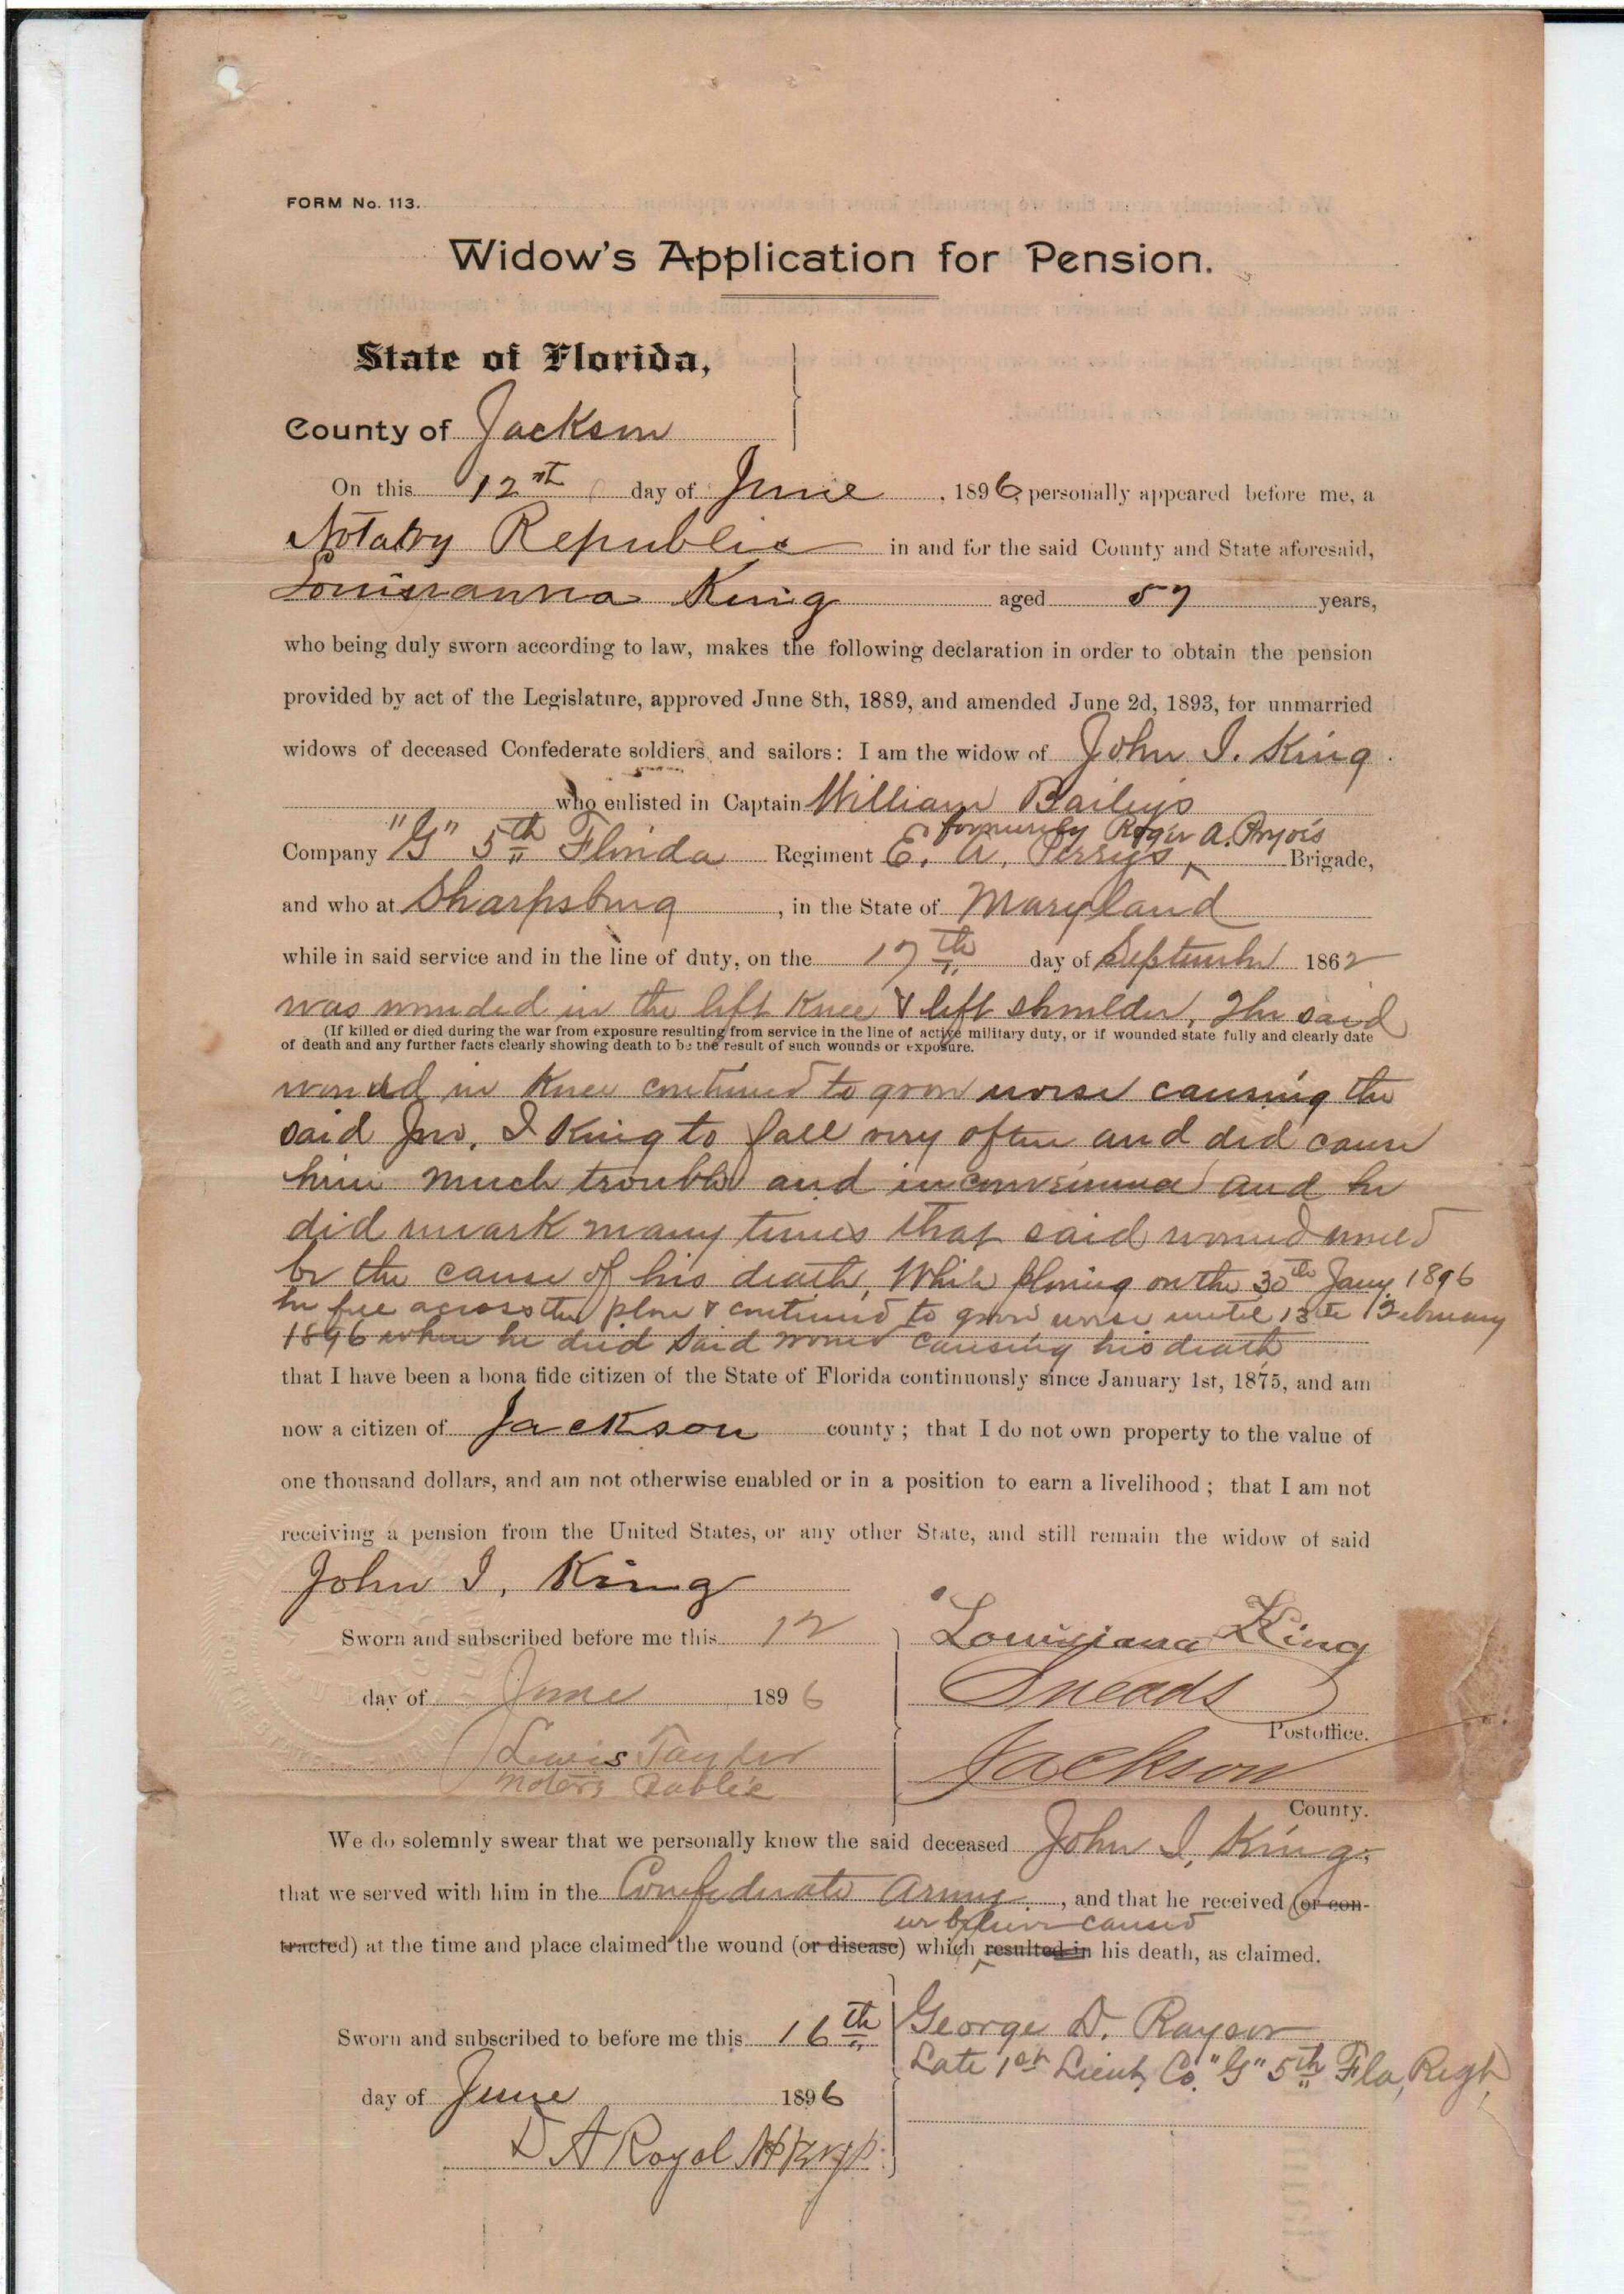 FORM No. 113.
Widow's Application for Pension.
State of Florida,
County of Jackson
On this 12th day of June, 1896, personally appeared before me, a
Notary Republic in and for the said County and State aforesaid,
Louisianna King aged 57 years,
who being duly sworn according to law, makes the following declaration in order to obtain the pension
provided by act of the Legislature, approved June 8th, 1889, and amended June 2d, 1893, for unmarried
widows of deceased Confederate soldiers and sailors: I am the widow of John I. King
who enlisted in Captain William Baileys
formerly Roger A. Pryors
Company "G" 5th Florida Regiment E. A. Perrys Brigade,
and who at Sharpsburg, in the State of Maryland
while in said service and in the line of duty, on the 17th day of September 1862
was wounded in the left Knee & left shoulder, The said
(If killed or died during the war from exposure resulting from service in the line of active military duty, or if wounded state fully and clearly date
of death and any further facts clearly showing death to be the result of such wounds or exposure.
wound in Knee continued to grow worse causing the
said Jno. I King to fall very often and did cause
him much trouble and inconvenience and he
did remark many times that said wound would
be the cause of his death, While plowing on the 30th Jany. 1896
he fell across the plow & continued to grow worse until 13th February
1896 when he died said wound causing his death
that I have been a bona fide citizen of the State of Florida continuously since January 1st, 1875, and am
now a citizen of Jackson county; that I do not own property to the value of
one thousand dollars, and am not otherwise enabled or in a position to earn a livelihood; that I am not
receiving a pension from the United States, or any other State, and still remain the widow of said
John I, King
Sworn and subscribed before me this 12
Louisiana King
day of June 1896
Sneads
Postoffice.
Lewis Taylor
Notary Public
Jackson
County.
We do solemnly swear that we personally knew the said deceased John I, King,
that we served with him in the Confederate Army, and that he received (or con-
we believe caused
tracted) at the time and place claimed the wound (or disease) which resulted in his death, as claimed.
Sworn and subscribed to before me this 16th
George D. Raysor
Late 1st Lieut, Co. "G" 5th Fla, Regt,
day of June 1896
D A Royal